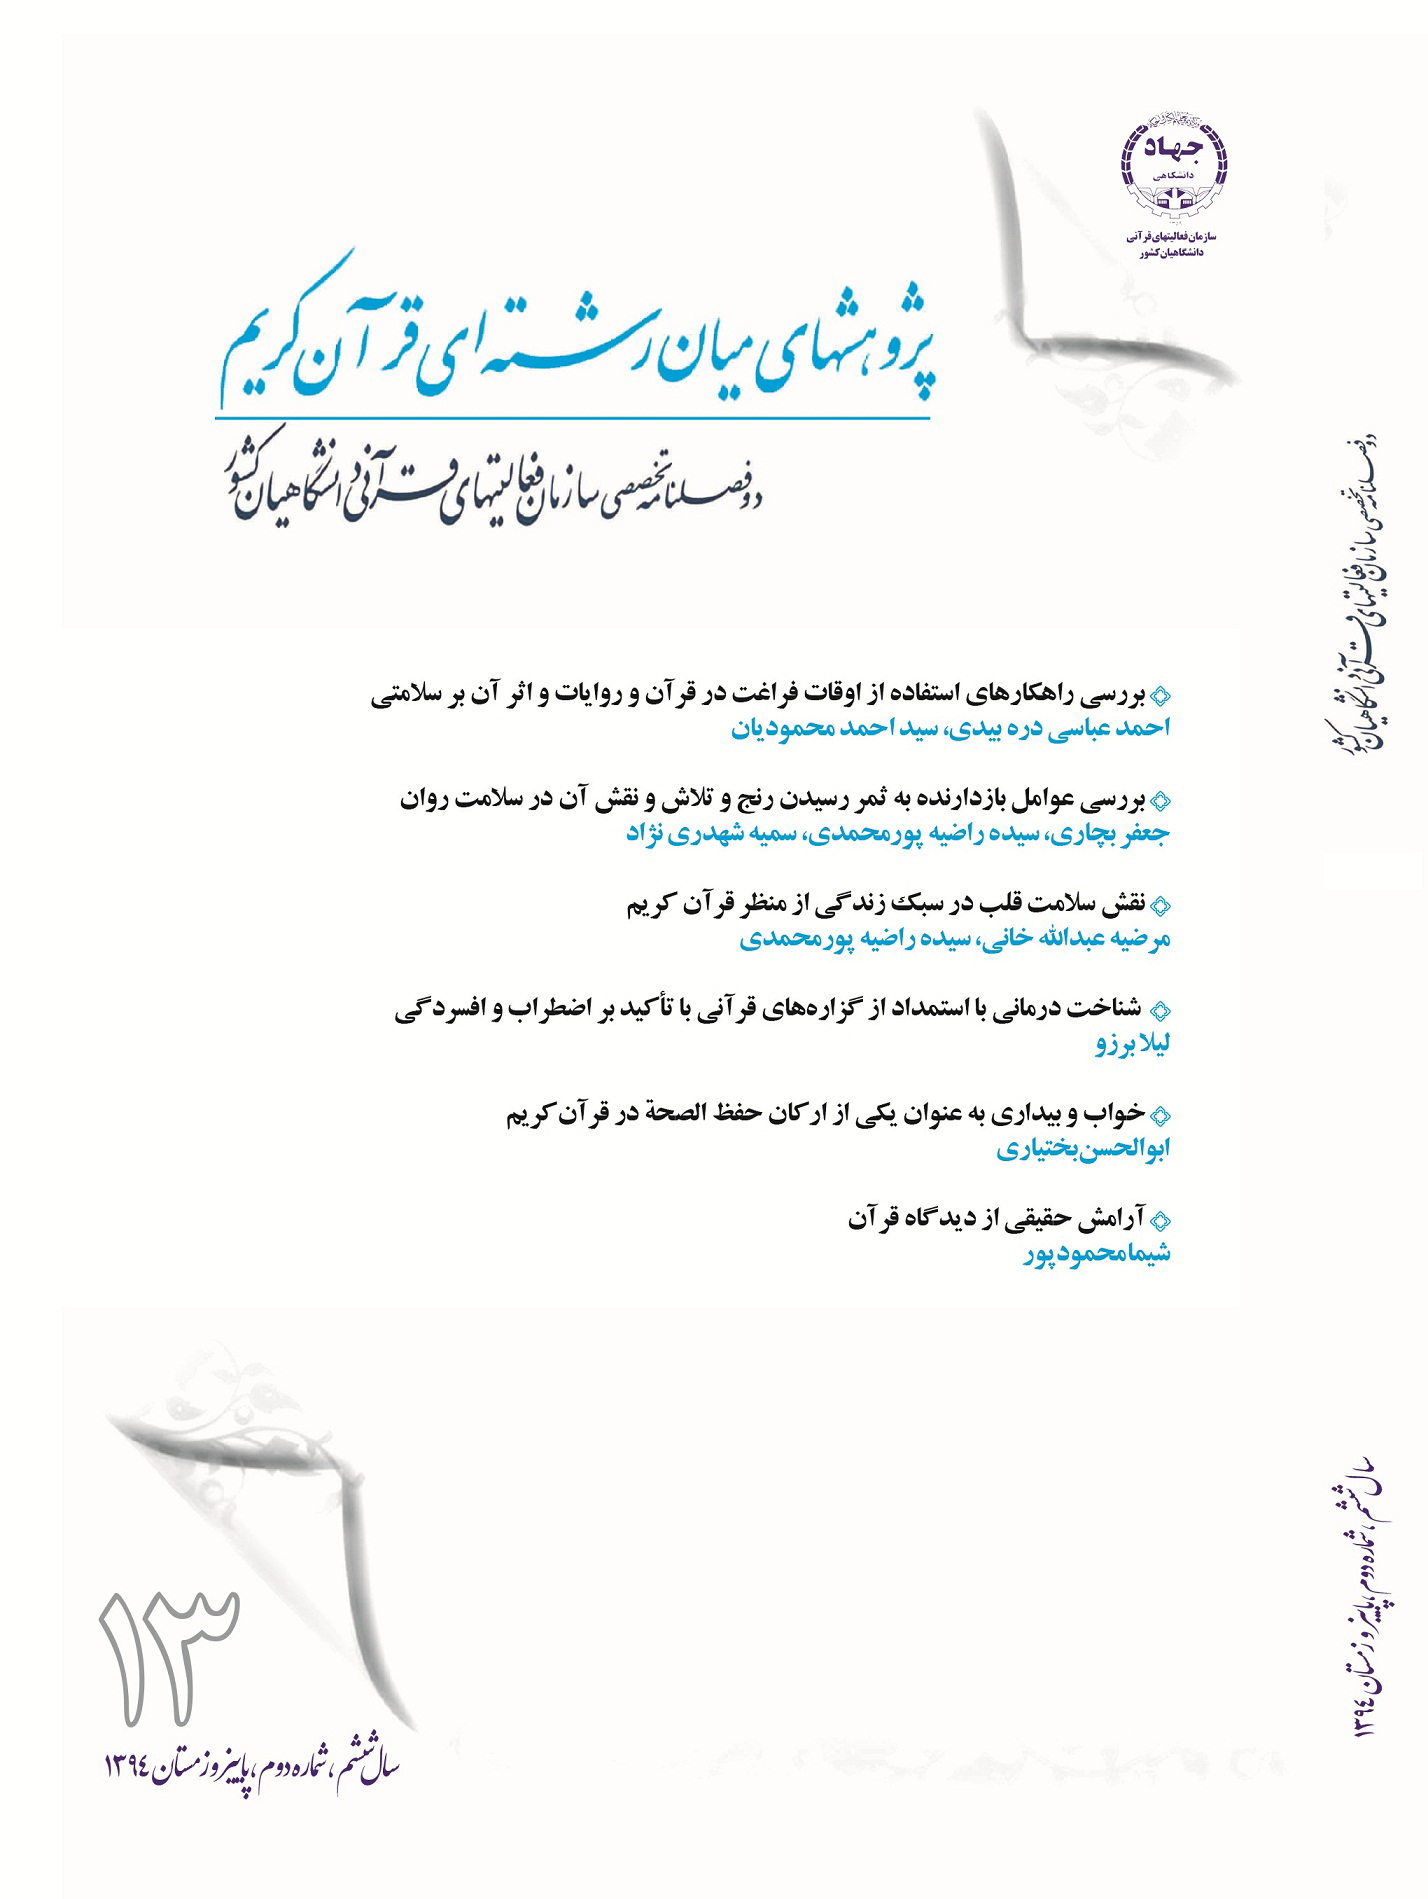 جهاد
دانشگاهی
سازمان فعالیتهای قرآنی
دانشگاهیان کشور
پژوهشهای میان رشته ای قرآن کریم
دوفصلنامه تخصصی سازمان فعالیتهای قرآنی دانشگاهیان کشور
بررسی راهکارهای استفاده از اوقات فراغت در قرآن و روایات و اثر آن بر سلامتی
احمد عباسی دره بیدی، سید احمد محمودیان
بررسی عوامل بازدارنده به ثمر رسیدن رنج و تلاش و نقش آن در سلامت روان
جعفر بچاری، سیده راضیه پورمحمدی، سمیه شهدری نژاد
نقش سلامت قلب در سبک زندگی از منظر قرآن کریم
مرضیه عبدالله خانی، سیده راضیه پورمحمدی
شناخت درمانی با استمداد از گزاره‌های قرآنی با تأکید بر اضطراب و افسردگی
لیلا برزو
خواب و بیداری به عنوان یکی از ارکان حفظ الصحة در قرآن کریم
ابوالحسن بختیاری
آرامش حقیقی از دیدگاه قرآن
شیما محمودپور
۱۳
سال ششم، شماره دوم، پاییز و زمستان ۱۳۹۴
دوفصلنامه تخصصی سازمان فعالیتهای قرآنی دانشگاهیان کشور
سال ششم، شماره دوم، پاییز و زمستان ۱۳۹۴